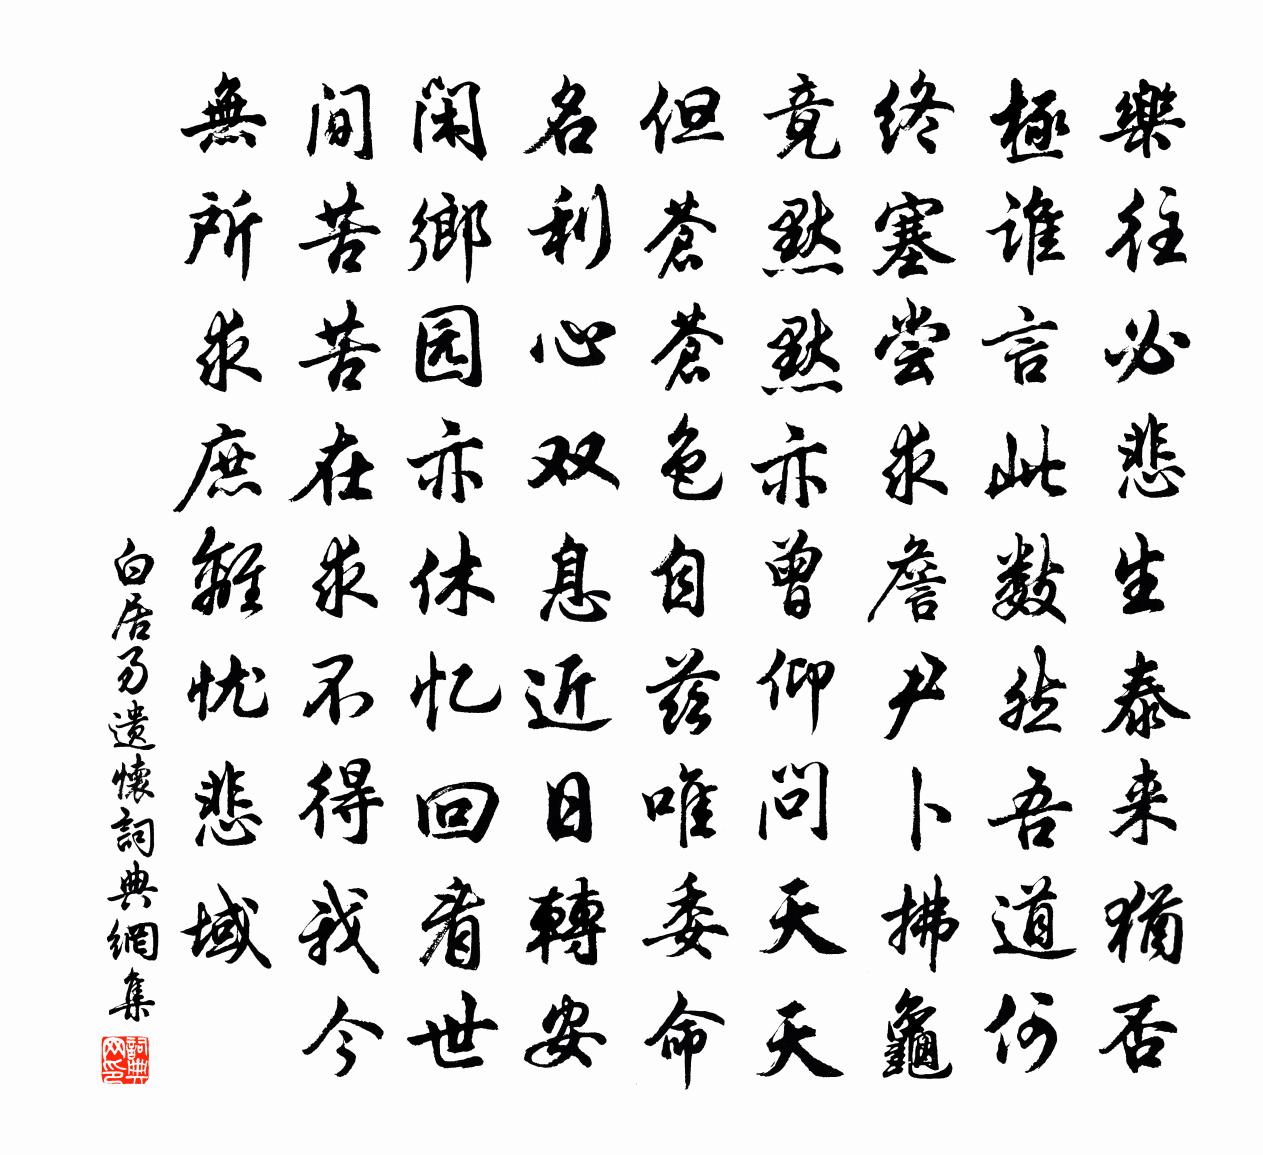 樂往必悲生泰来猶否
極谁言此數然吾道何
终塞尝求詹尹卜拂龜
竟黙黙亦曾仰问天天
但蒼蒼色自兹唯委命
名利心双息近日轉安
闲鄉园亦休忆回看世
间苦苦在求不得我今
無所求庶離忧悲域
白居易遗懷詞典網集
詞典网印